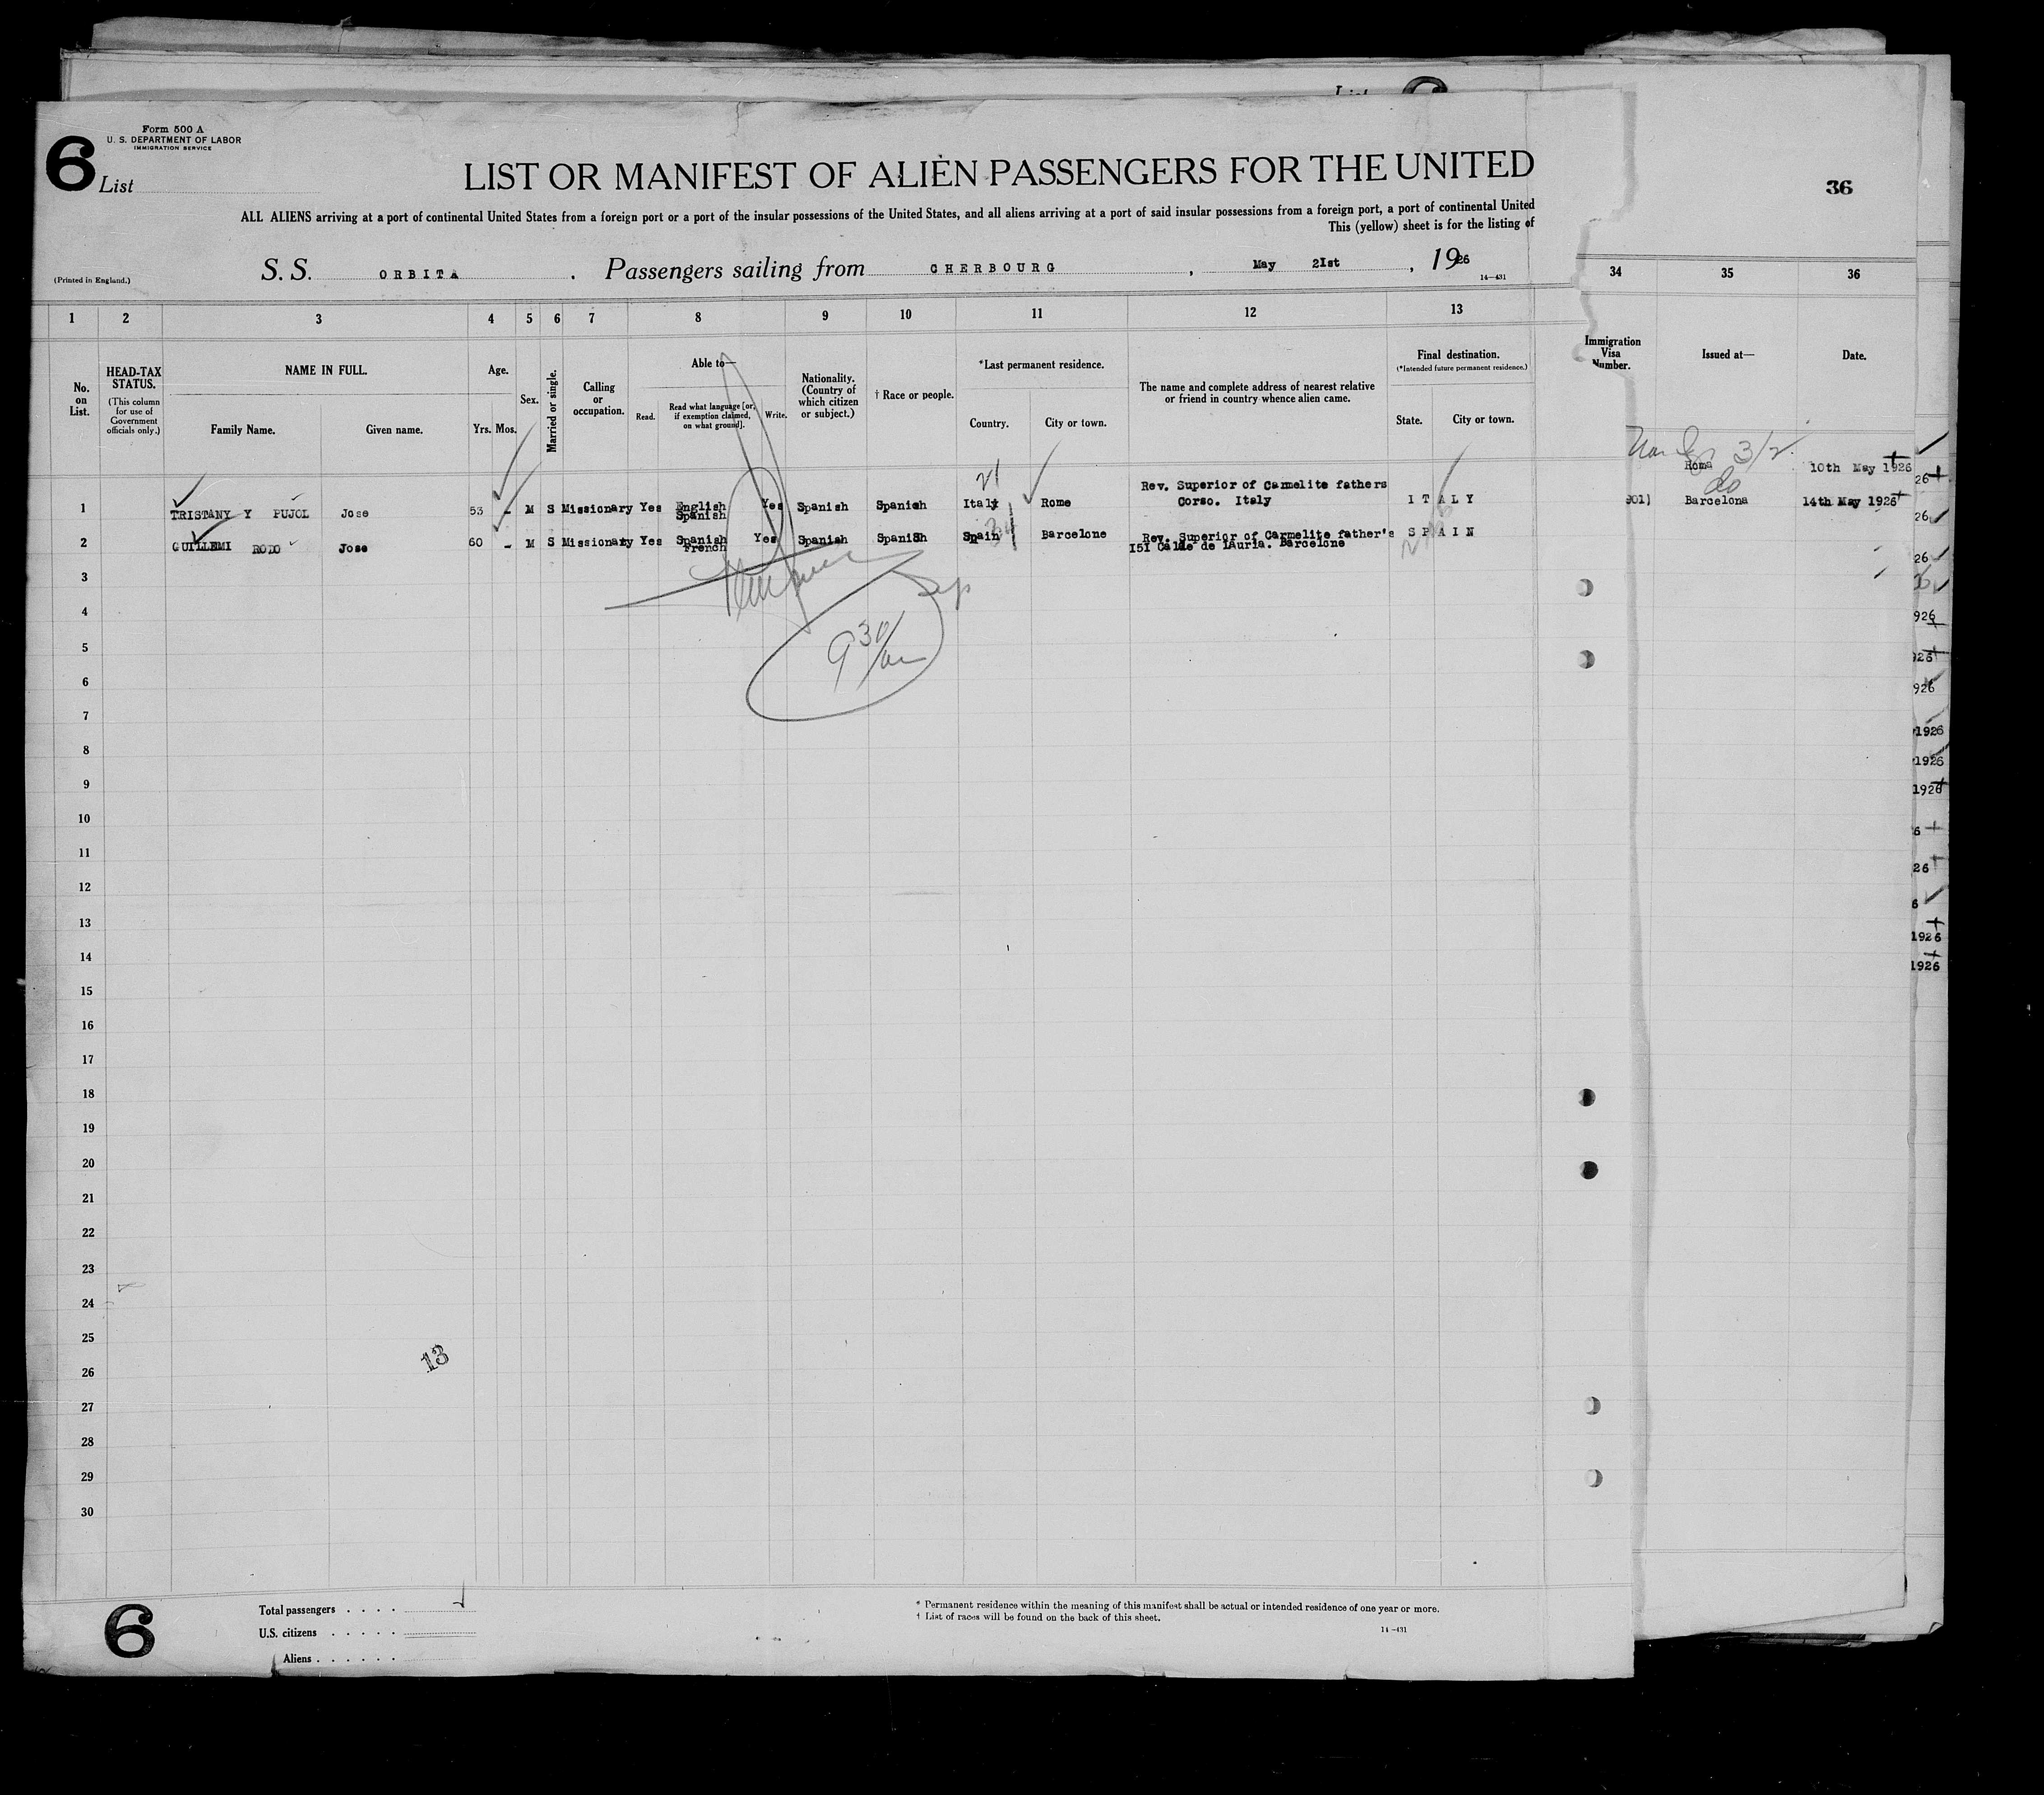 6
Form 500 A
U. S. DEPARTMENT OF LABOR
IMMIGRATION SERVICE
List
LIST OR MANIFEST OF ALIEN PASSENGERS FOR THE UNITED
36
ALL ALIENS arriving at a port of continental United States from a foreign port or a port of the insular possessions of the United States, and all aliens arriving at a port of said insular possessions from a foreign port, a port of continental United
This (yellow) sheet is for the listing of
(Printed in England.)
S. S. ORBITA . Passengers sailing from CHERBOURG , May 21st , 1926
14—431
1 2 3 4 5 6 7 8 9 10 11 12 13 34 35 36
No. on List.
HEAD-TAX STATUS.
(This column for use of Government officials only.)
NAME IN FULL.
Family Name. Given name.
Age.
Yrs. Mos.
Sex.
Married or single.
Calling or occupation.
Able to—
Read.
Read what language [or, if exemption claimed, on what ground].
Write.
Nationality. (Country of which citizen or subject.)
† Race or people.
*Last permanent residence.
Country. City or town.
The name and complete address of nearest relative or friend in country whence alien came.
Final destination.
(*Intended future permanent residence.)
State. City or town.
Immigration Visa Number.
Issued at—
Date.
Roma 10th May 1926
1 TRISTANY Y PUJOL Jose 53 - M S Missionary Yes English Spanish Yes Spanish Spanish Italy Rome Rev. Superior of Carmelite fathers Corso. Italy ITALY
901) Barcelona 14th May 1926
2 GUILLEMI RODO Jose 60 - M S Missionary Yes Spanish French Yes Spanish Spanish Spain Barcelone Rev. Superior of Carmelite father's 151 Calle de lAuria. Barcelone SPAIN
9 30/am
3
4
5
6
7
8
9
10
11
12
13
14
15
16
17
18
19
20
21
22
23
24
25
13
26
27
28
29
30
6
Total passengers . . . .
U.S. citizens . . . . .
Aliens . . . . . .
* Permanent residence within the meaning of this manifest shall be actual or intended residence of one year or more.
† List of races will be found on the back of this sheet.
14—431